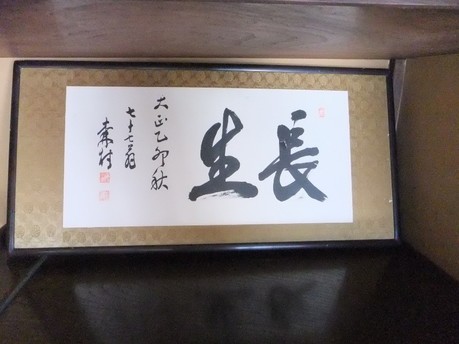 長生
大正乙卯秋
七十七翁